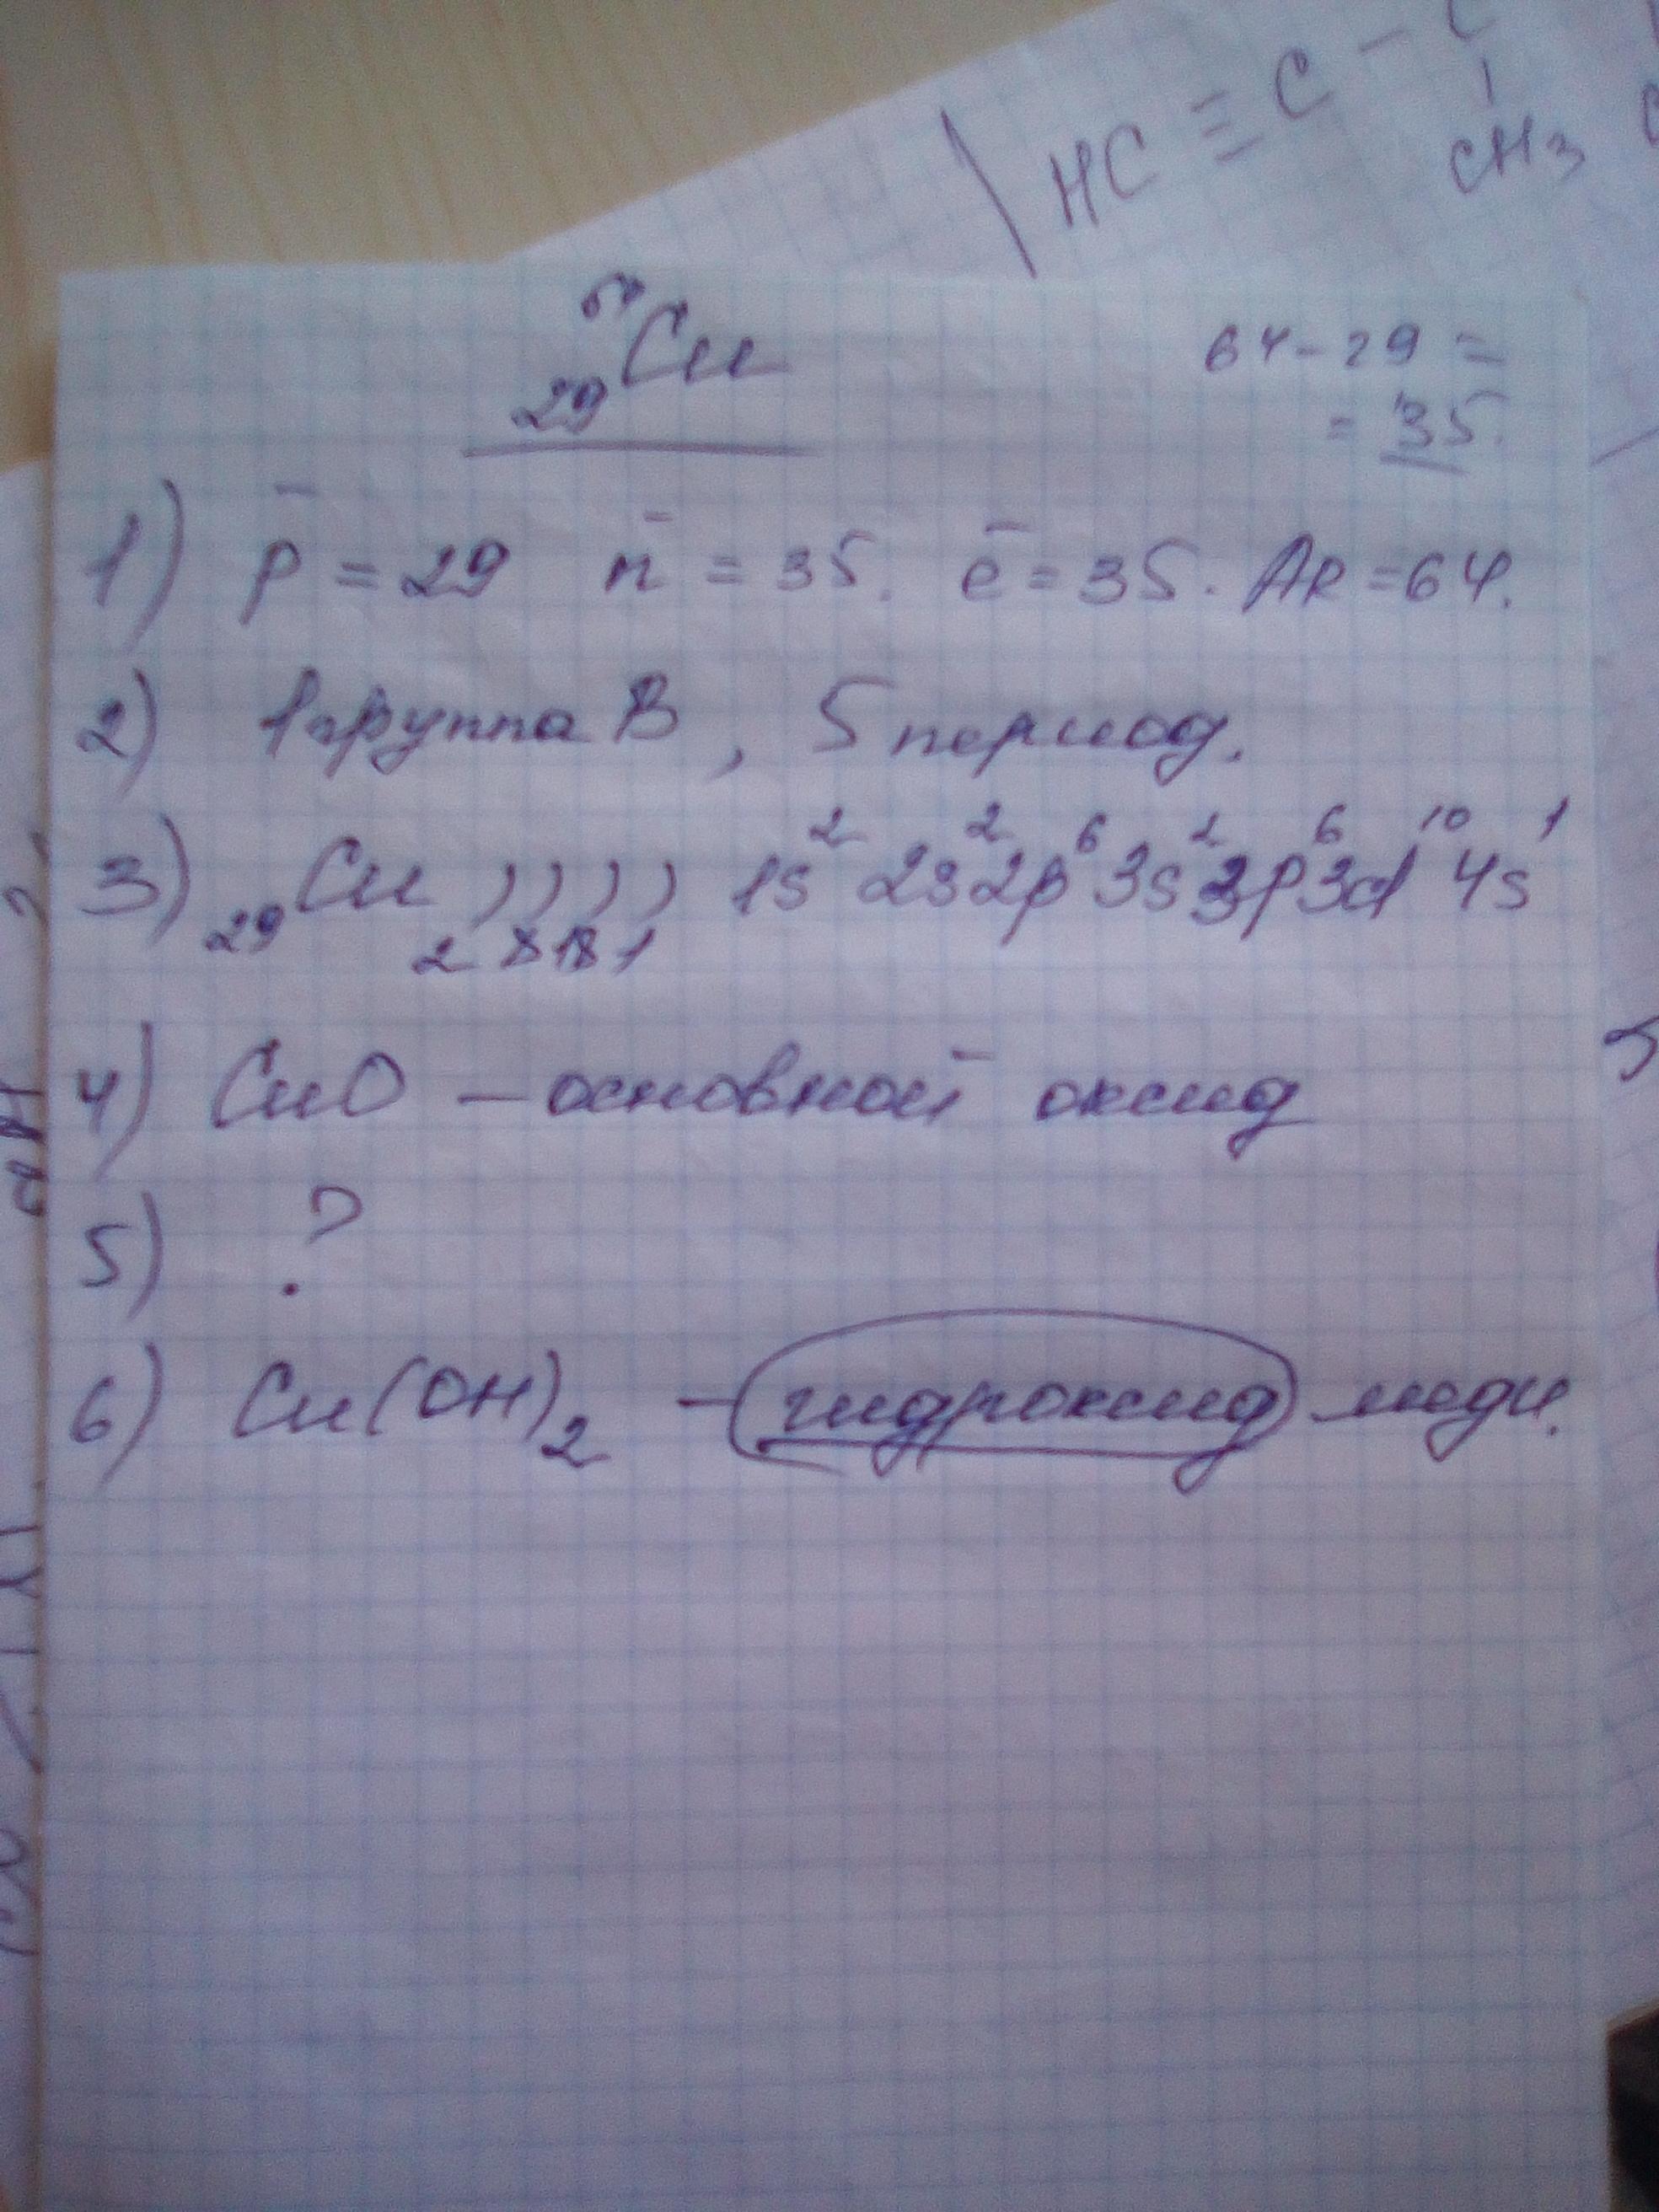 HC ≡ C - C
CH3
64
29 Cu
64 - 29 =
= 35.
1) p̄ = 29 n̄ = 35. ē = 35. Ar = 64.
2) 1 группа B, 5 период.
3) 29 Cu ) ) ) ) 1s² 2s² 2p⁶ 3s² 3p⁶ 3d¹⁰ 4s¹
2 8 18 1
4) CuO — основной оксид
5) ?
6) Cu(OH)₂ - гидроксид меди.